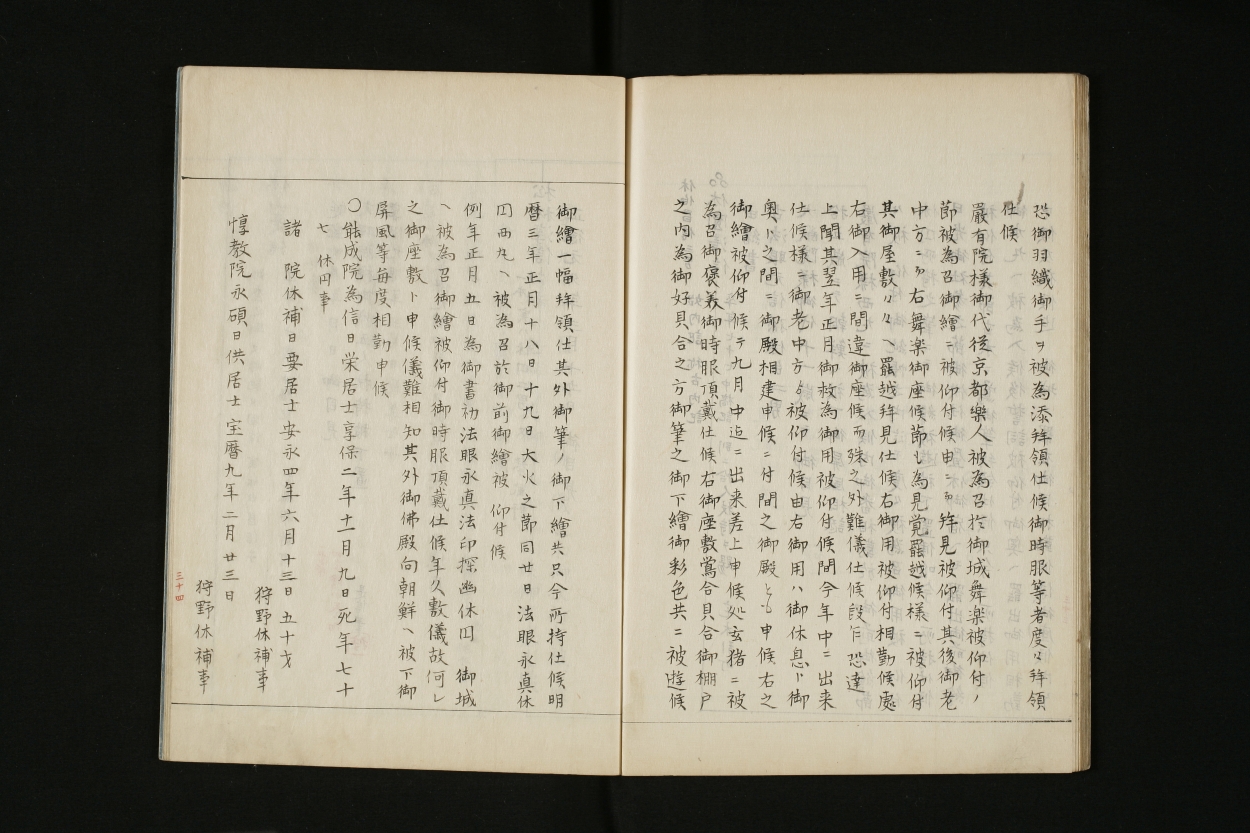 恐御羽織御手ヲ被為添拝領仕候御時服等者度々拝領
仕候
嚴有院様御代従京都樂人被為召於御城舞楽被仰付ノ
節被為召御繪ニ被仰付候由ニ而拝見被仰付其後御老
中方ニ而右舞楽御座候節も為見覚罷越候様ニ被仰付
其御屋敷々々ヘ罷越拝見仕候右御用被仰付相勤候處
右御入用ニ間違御座候而殊之外難儀仕候段乍恐達
上聞其翌年正月御救為御用被仰付候間今年中ニ出来
仕候様ニ御老中方ゟ被仰付候由右御用ハ御休息ト御
奥ト之間ニ御殿相建申候ニ付間之御殿とも申候右之
御繪被仰付候テ九月中迄ニ出来差上申候処玄猪ニ被
為召御褒美御時服頂戴仕候右御座敷鴬合貝合御棚戸
之内為御好貝合之方御筆之御下繪御彩色共ニ被遊候
御繪一幅拝領仕其外御筆ノ御下繪共只今所持仕候明
暦三年正月十八日十九日大火之節同廿日法眼永真休
円両九ヘ被為召於御前御繪被 仰付候
例年正月五日為御書初法眼永真法印探幽休円 御城
ヘ被為召御繪被仰付御時服頂戴仕候年久敷儀故何レ
之御座敷ト申候儀難相知其外御佛殿向朝鮮ヘ被下御
屏風等毎度相勤申候
〇能成院為信日栄居士享保二年十一月九日死年七十
七 休円事
諸 院休補日要居士安永四年六月十三日五十才
狩野休補事
惇教院永碩日供居士宝暦九年二月廿三日
狩野休補事
三十四